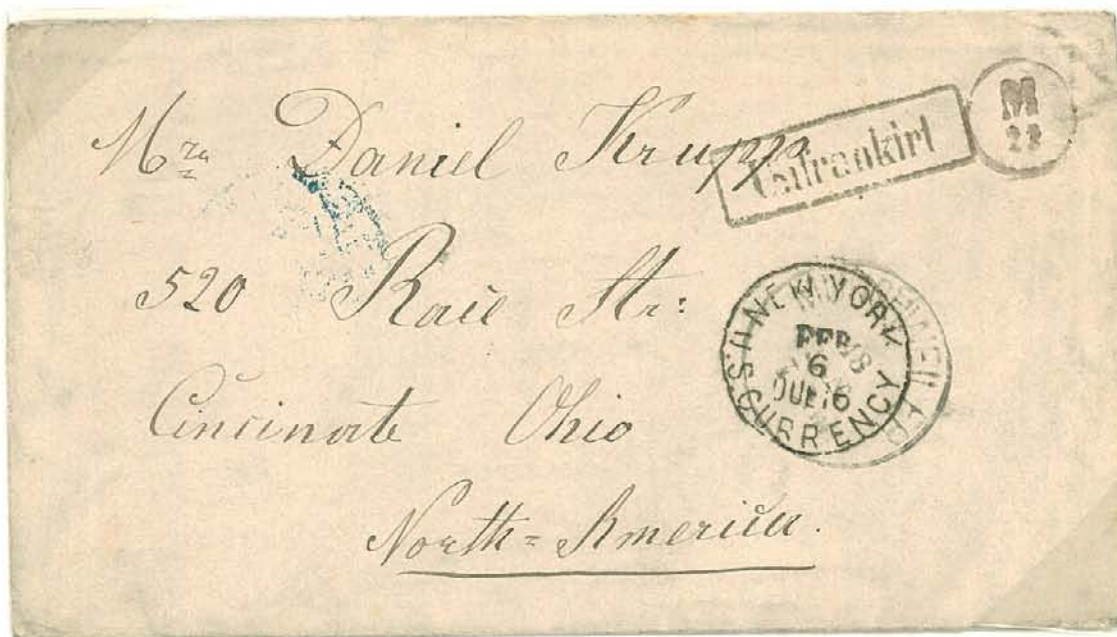 Mrs Daniel Krupp
Unfrankirt
M
22
520 Race Str:
NEW YORK
FEB
6
DUE 16
U.S. CURRENCY
Cincinate Ohio
North=America.